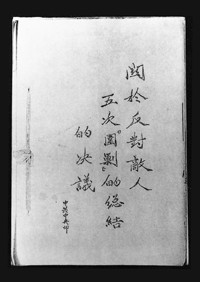 關於反對敵人
五次“圍剿”的總結
的決議
中共中央印